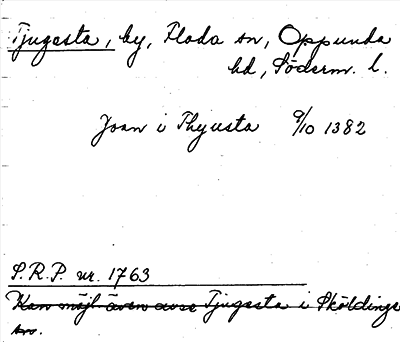 Tjugesta, by, Floda sn, Oppunda
hd, Söderm. l.
Joan i Thyusta 9/10 1382
S.R.P. nr. 1763
Kan möjl. även avse Tjugesta i Sköldinge
sn.